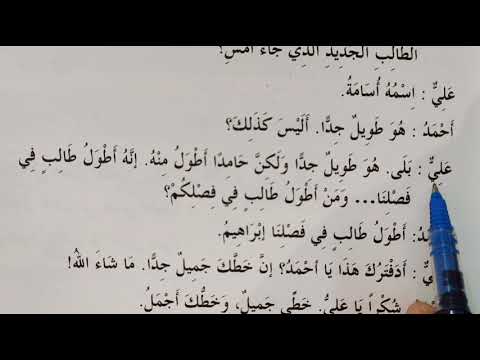 الطَّالِبِ الْجَدِيدِ الَّذِي جَاءَ أَمْسِ؟
عَلِيٌّ : اِسْمُهُ أُسَامَةُ.
أَحْمَدُ : هُوَ طَوِيلٌ جِدًّا. أَلَيْسَ كَذَلِكَ؟
عَلِيٌّ : بَلَى. هُوَ طَوِيلٌ جِدًّا وَلَكِنَّ حَامِدًا أَطْوَلُ مِنْهُ. إِنَّهُ أَطْوَلُ طَالِبٍ فِي
فَصْلِنَا... وَمَنْ أَطْوَلُ طَالِبٍ فِي فَصْلِكُمْ؟
مَدُ: أَطْوَلُ طَالِبٍ فِي فَصْلِنَا إِبْرَاهِيمُ.
يٌّ : أَدَفْتَرُكَ هَذَا يَا أَحْمَدُ؟ إِنَّ خَطَّكَ جَمِيلٌ جِدًّا. مَا شَاءَ اللهُ!
شُكْراً يَا عَلِيُّ. خَطِّي جَمِيلٌ، وَخَطُّكَ أَجْمَلُ.